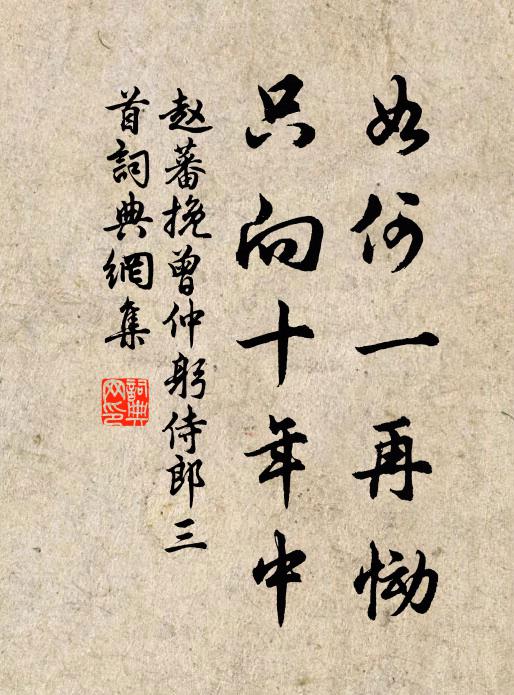 如何一再恸
只向十年中
赵蕃挽曾仲躬侍郎三
首詞典網集
詞典網印